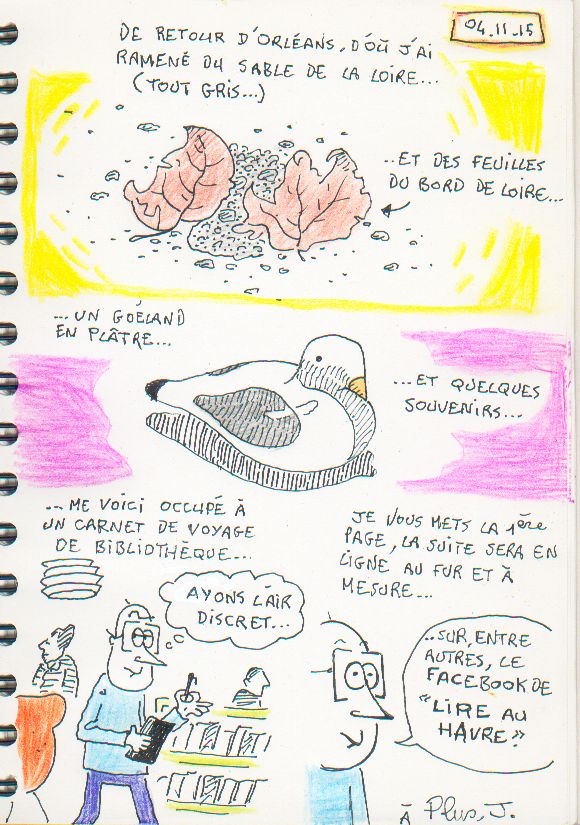 04.11.15
DE RETOUR D'ORLÉANS, D'OÙ J'AI
RAMENÉ DU SABLE DE LA LOIRE...
(TOUT GRIS...)
..ET DES FEUILLES
DU BORD DE LOIRE...
...UN GOÉLAND
EN PLÂTRE...
...ET QUELQUES
SOUVENIRS...
...ME VOICI OCCUPÉ À
UN CARNET DE VOYAGE
DE BIBLIOTHÈQUE...
JE VOUS METS LA 1ère
PAGE, LA SUITE SERA EN
LIGNE AU FUR ET À
MESURE...
AYONS L'AIR
DISCRET...
..SUR, ENTRE
AUTRES, LE
FACEBOOK DE
"LIRE AU
HAVRE".
À Plus, J.